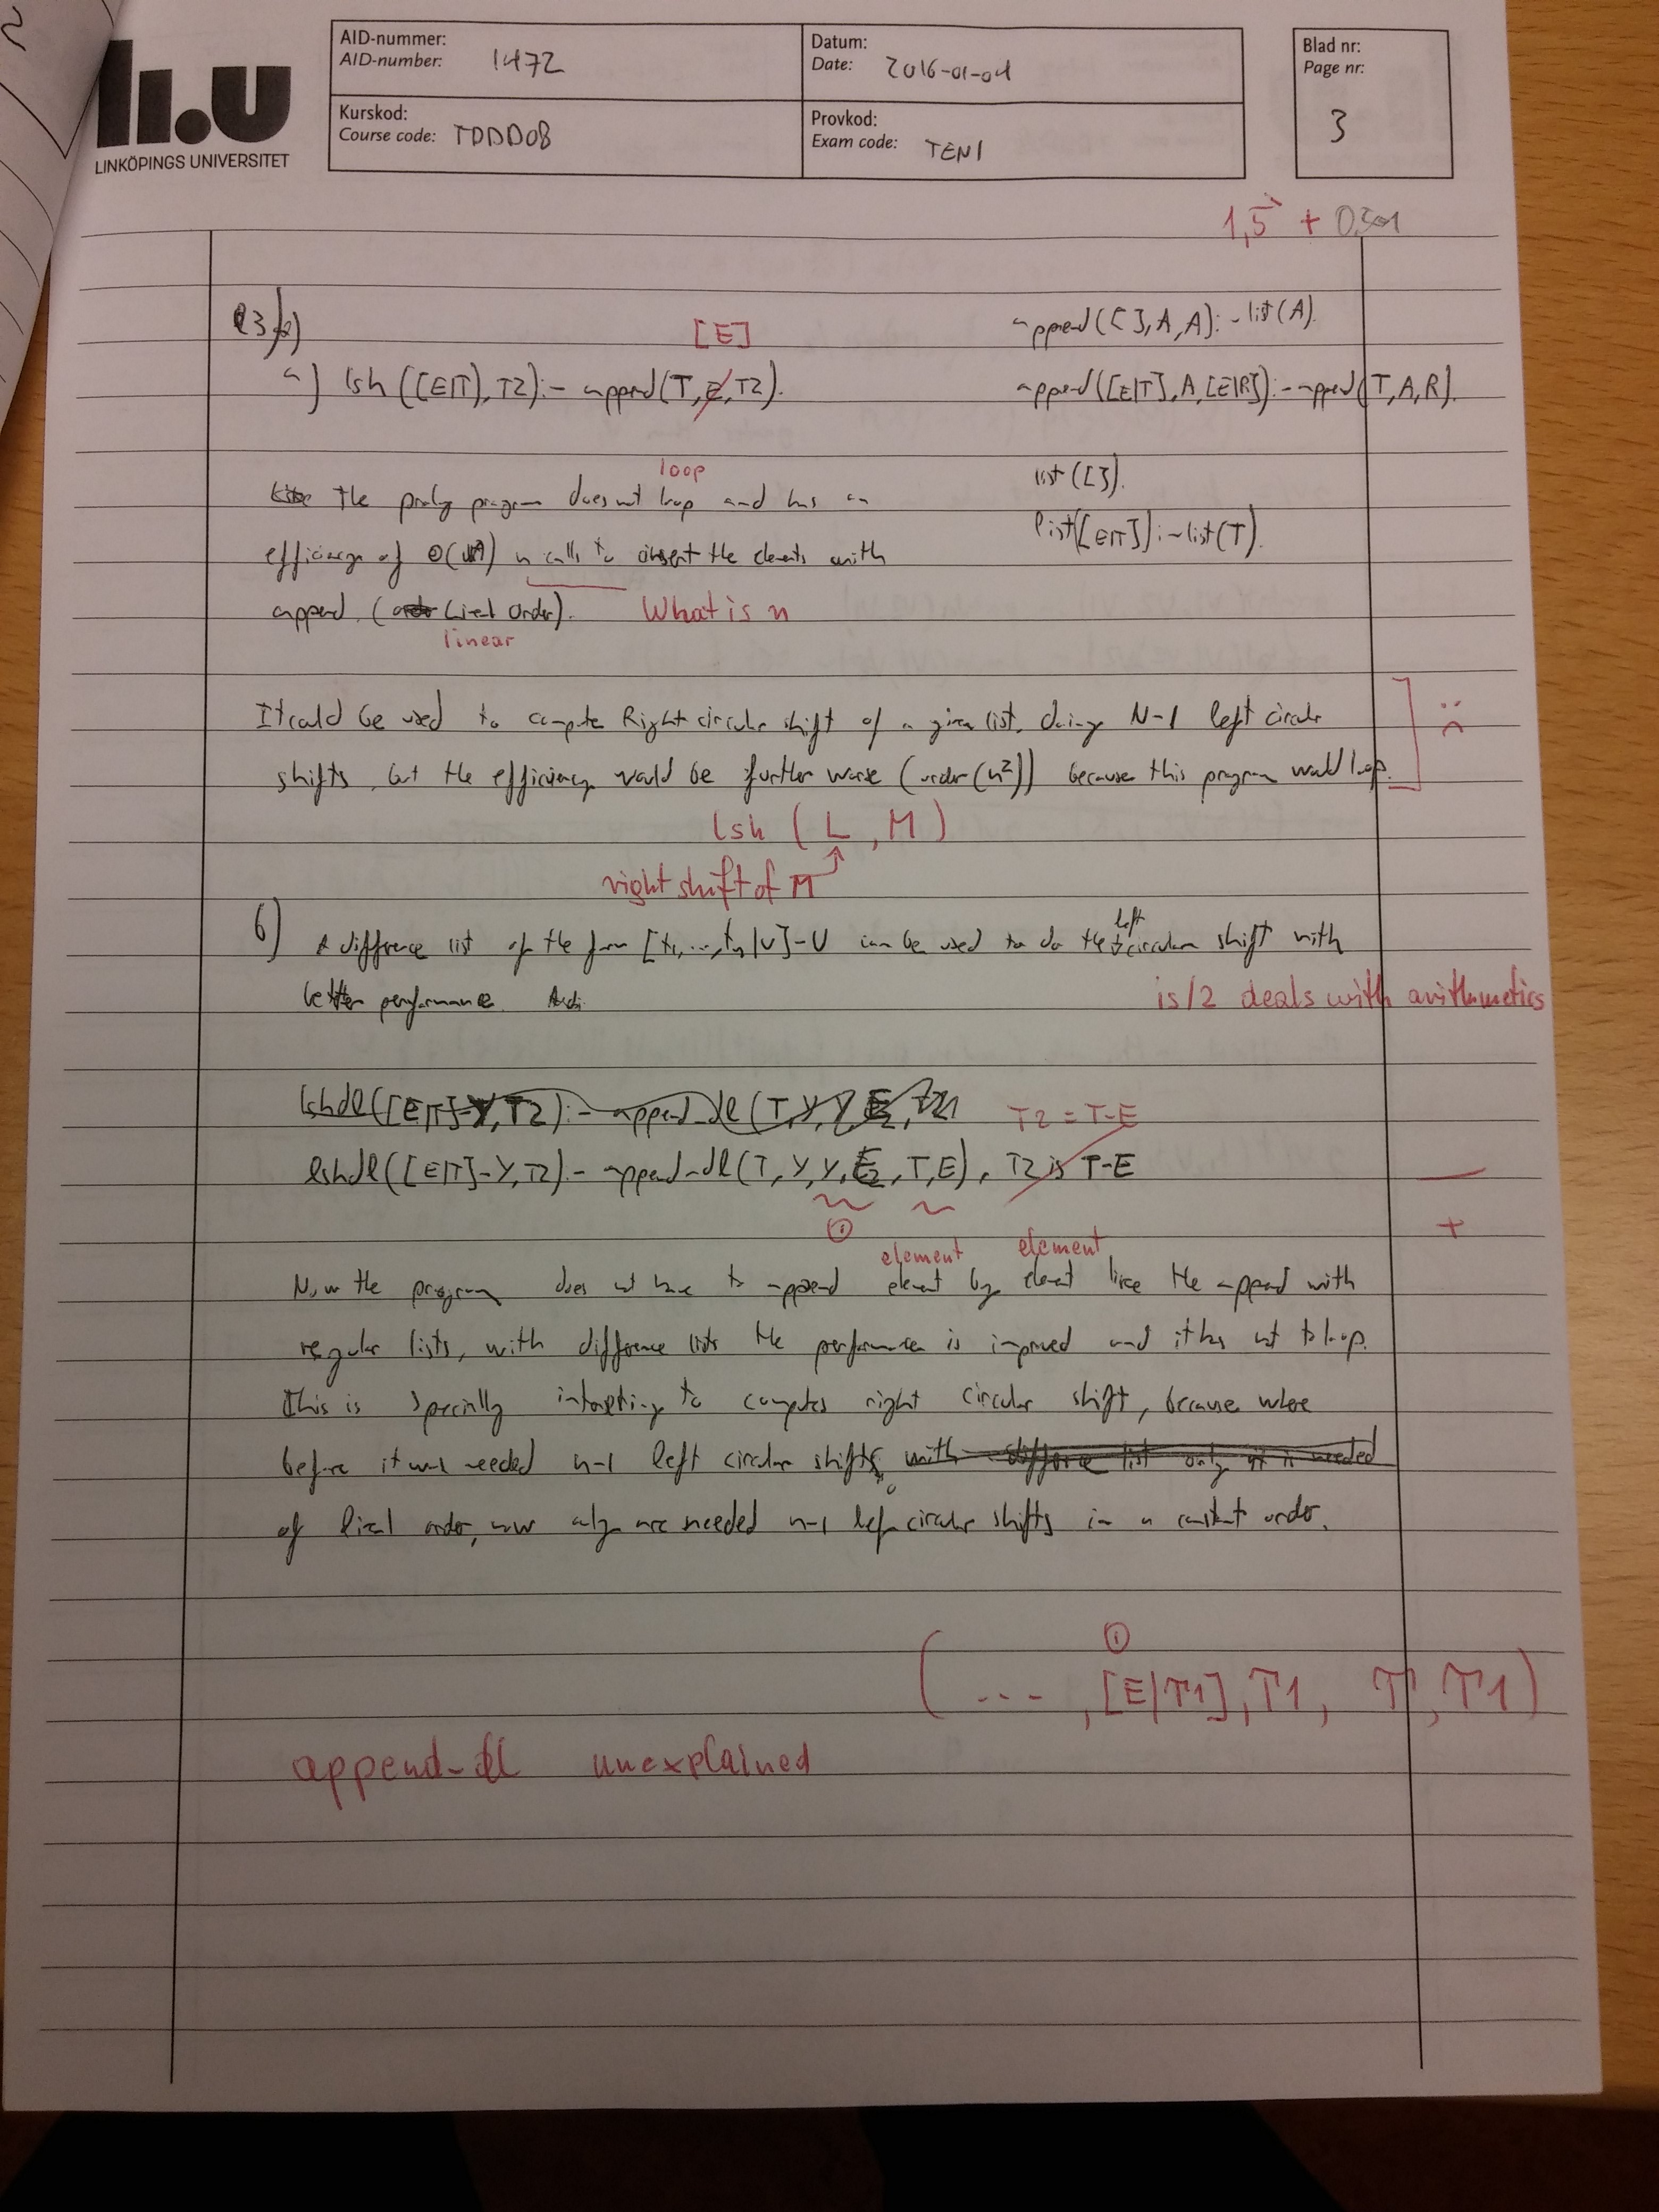 li.u
LINKÖPINGS UNIVERSITET
AID-nummer:
AID-number: 1472
Datum:
Date: 2016-01-04
Blad nr:
Page nr:
3
Kurskod:
Course code: TDDD08
Provkod:
Exam code: TEN1
1,5 +
[E]
append([], A, A):- list(A).
a) lsh([E|T], T2):- append(T, E, T2).
append([E|T], A, [E|R]):- append(T, A, R).
loop
list([]).
The program does not loop and has an
list[E|T]:- list(T).
efficiency of n calls to insert the elements with
append. ( order). What is n
linear
It could be used to compute Right circular shift of a given list, doing N-1 left circular
shifts, but the efficiency would be further worse (order(n²)) because this program would loop.
lsh (L, M)
right shift of M
b) A difference list of the form [t1,...,tn|U]-U can be used to do the left circular shift with
better performance.
is/2 deals with arithmetics
lshdl([E|T]-Y, T2):- append-dl(T, Y, Y,
T2 = T-E
lshdl([E|T]-Y, T2):- append-dl(T, Y, Y, E, T, E), T2 is T-E
①
+
element element
Now the program does not have to append element by element like the append with
regular lists, with difference lists the performance is improved and it has not to loop.
This is specially interesting to computes right circular shift, because where
before it was needed n-1 left circular shifts with difference list only it is needed
of order, now only are needed n-1 left circular shifts in a constant order.
①
(---, [E|T1], T1, T, T1)
append-dl unexplained